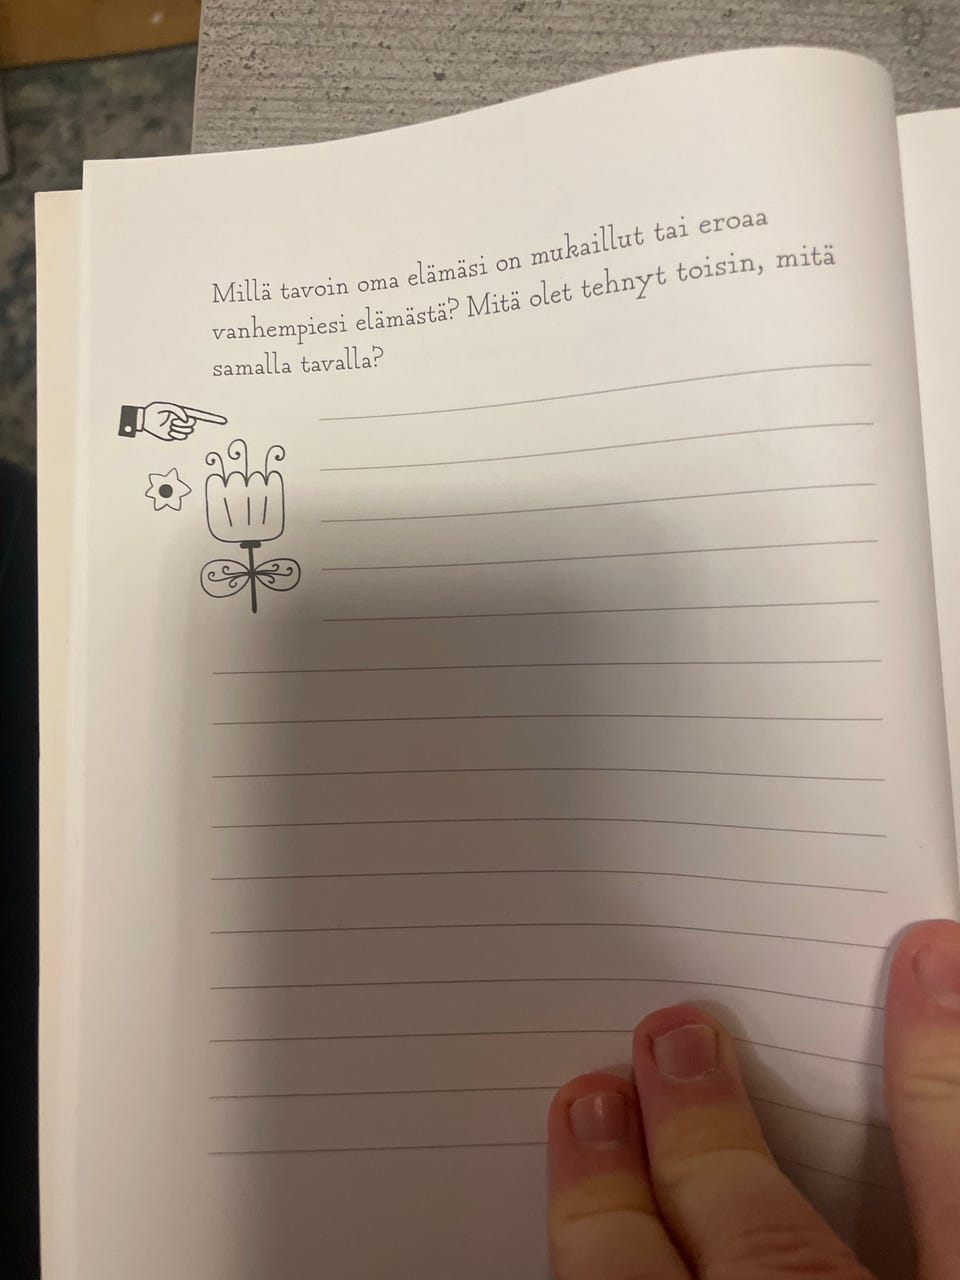 Millä tavoin oma elämäsi on mukaillut tai eroaa
vanhempiesi elämästä? Mitä olet tehnyt toisin, mitä
samalla tavalla?